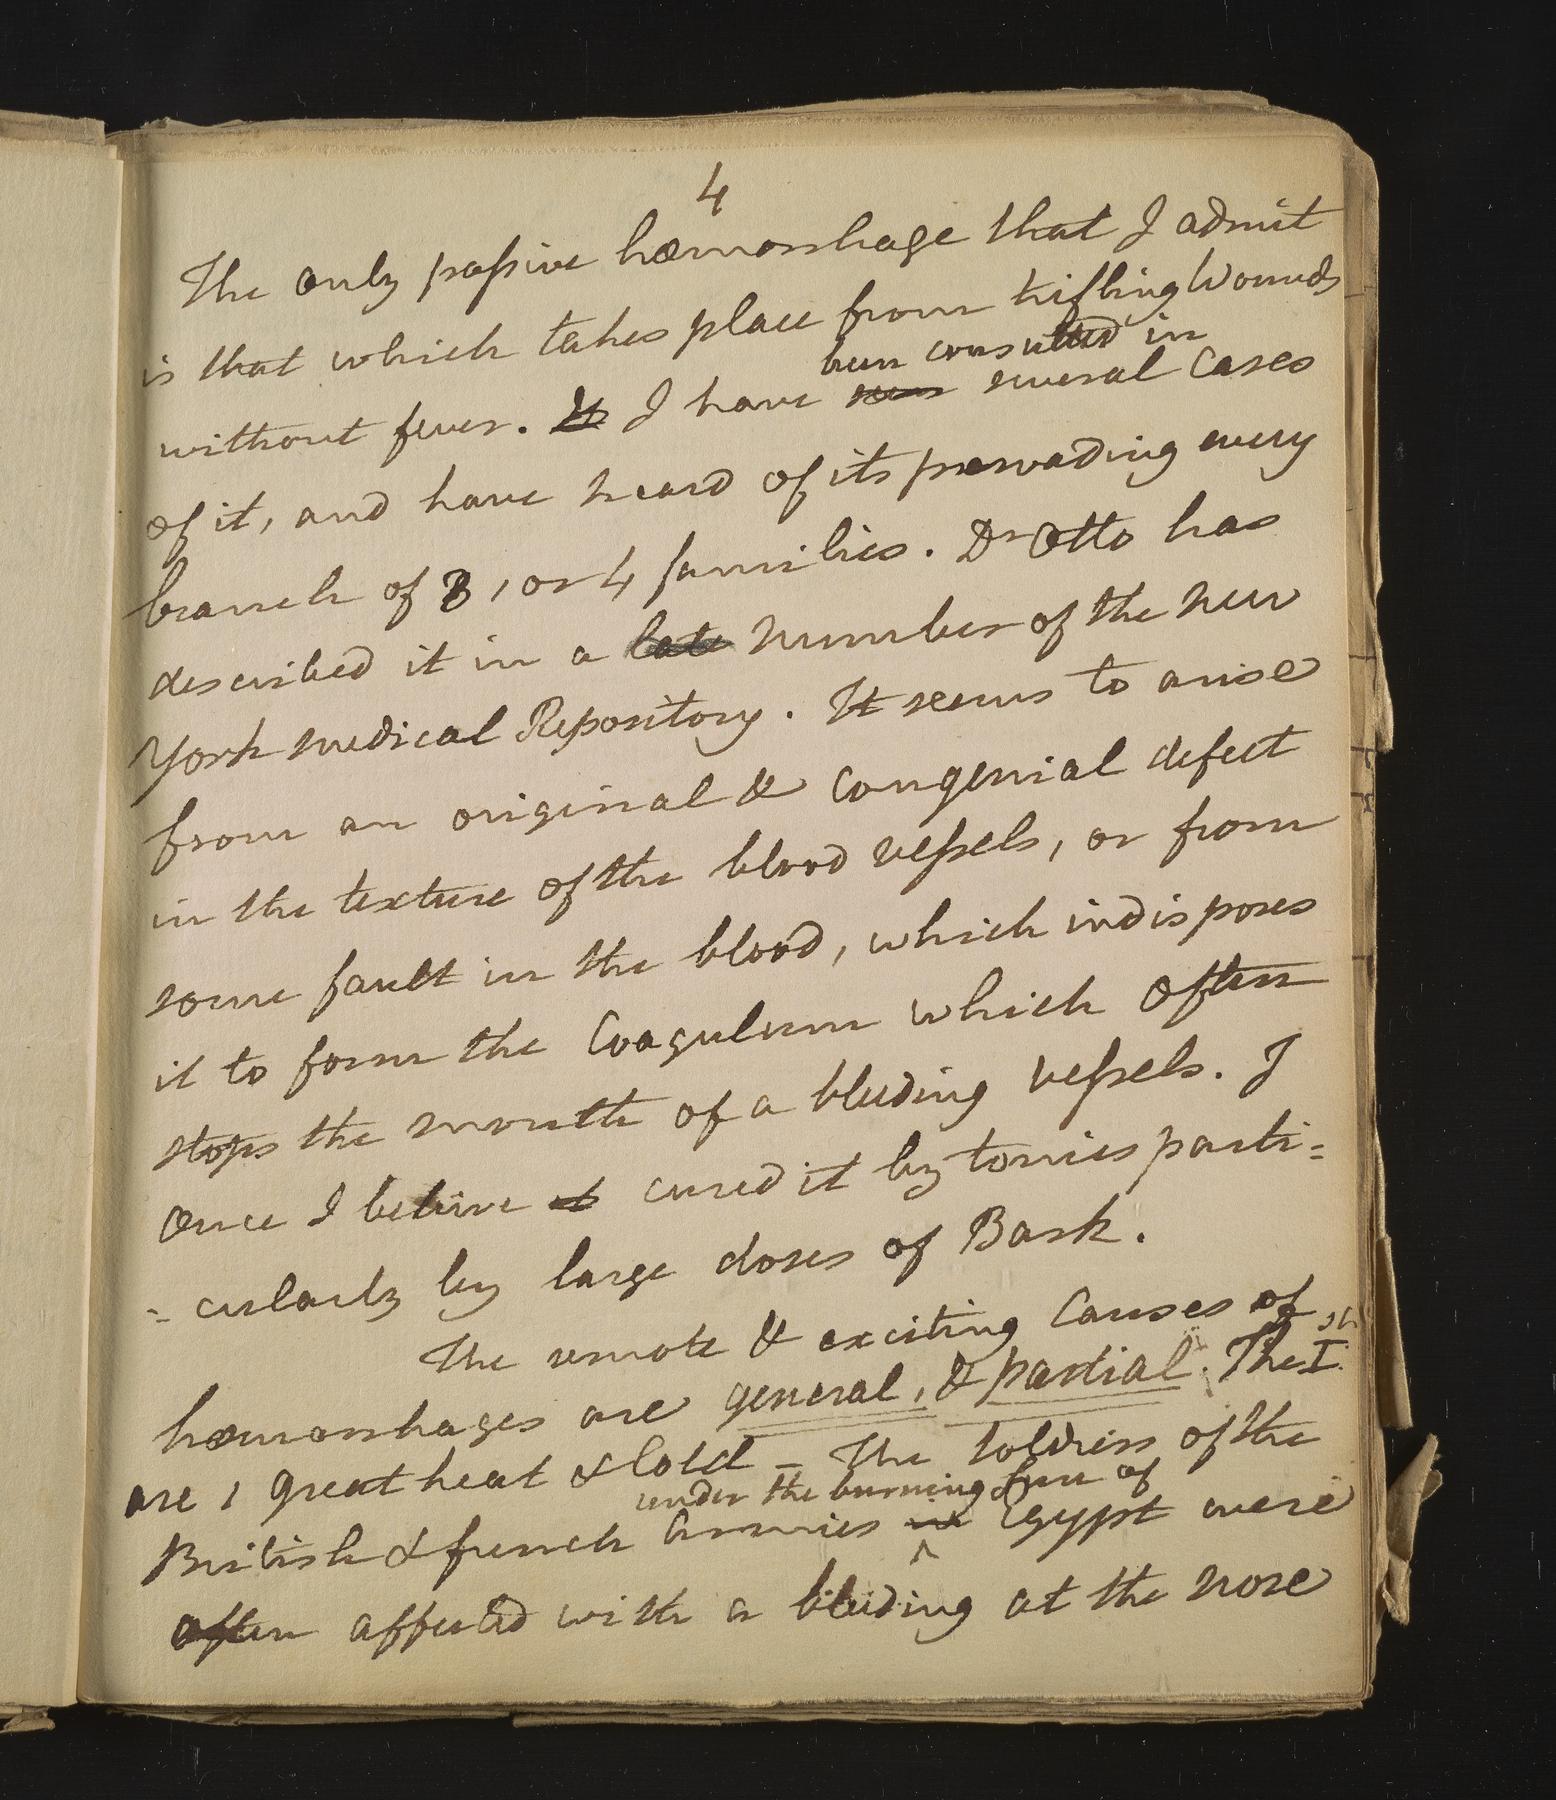 4
The only passive hæmorrhage that I admit
is that which takes place from trifling Wounds
been consulted in
without fever. It I have seen several Cases
of it, and have heard of its pervading every
branch of 3, or 4 families. Dr Otto has
described it in a late number of the new
York medical Repository. It seems to arise
from an original & congenial defect
in the texture of the blood vessels, or from
some fault in the blood, which indisposes
it to form the Coagulum which often
stops the mouth of a bleeding vessels. I
once I believe cured it by tonics parti=
=cularly by large doses of Bark.
The remote & exciting Causes of
hæmorrhages are general, & partial. The I st
are 1 great heat & Cold – The soldiers of the
under the burning sun of
British & french Armies in Egypt were
often affected with a bleeding at the nose